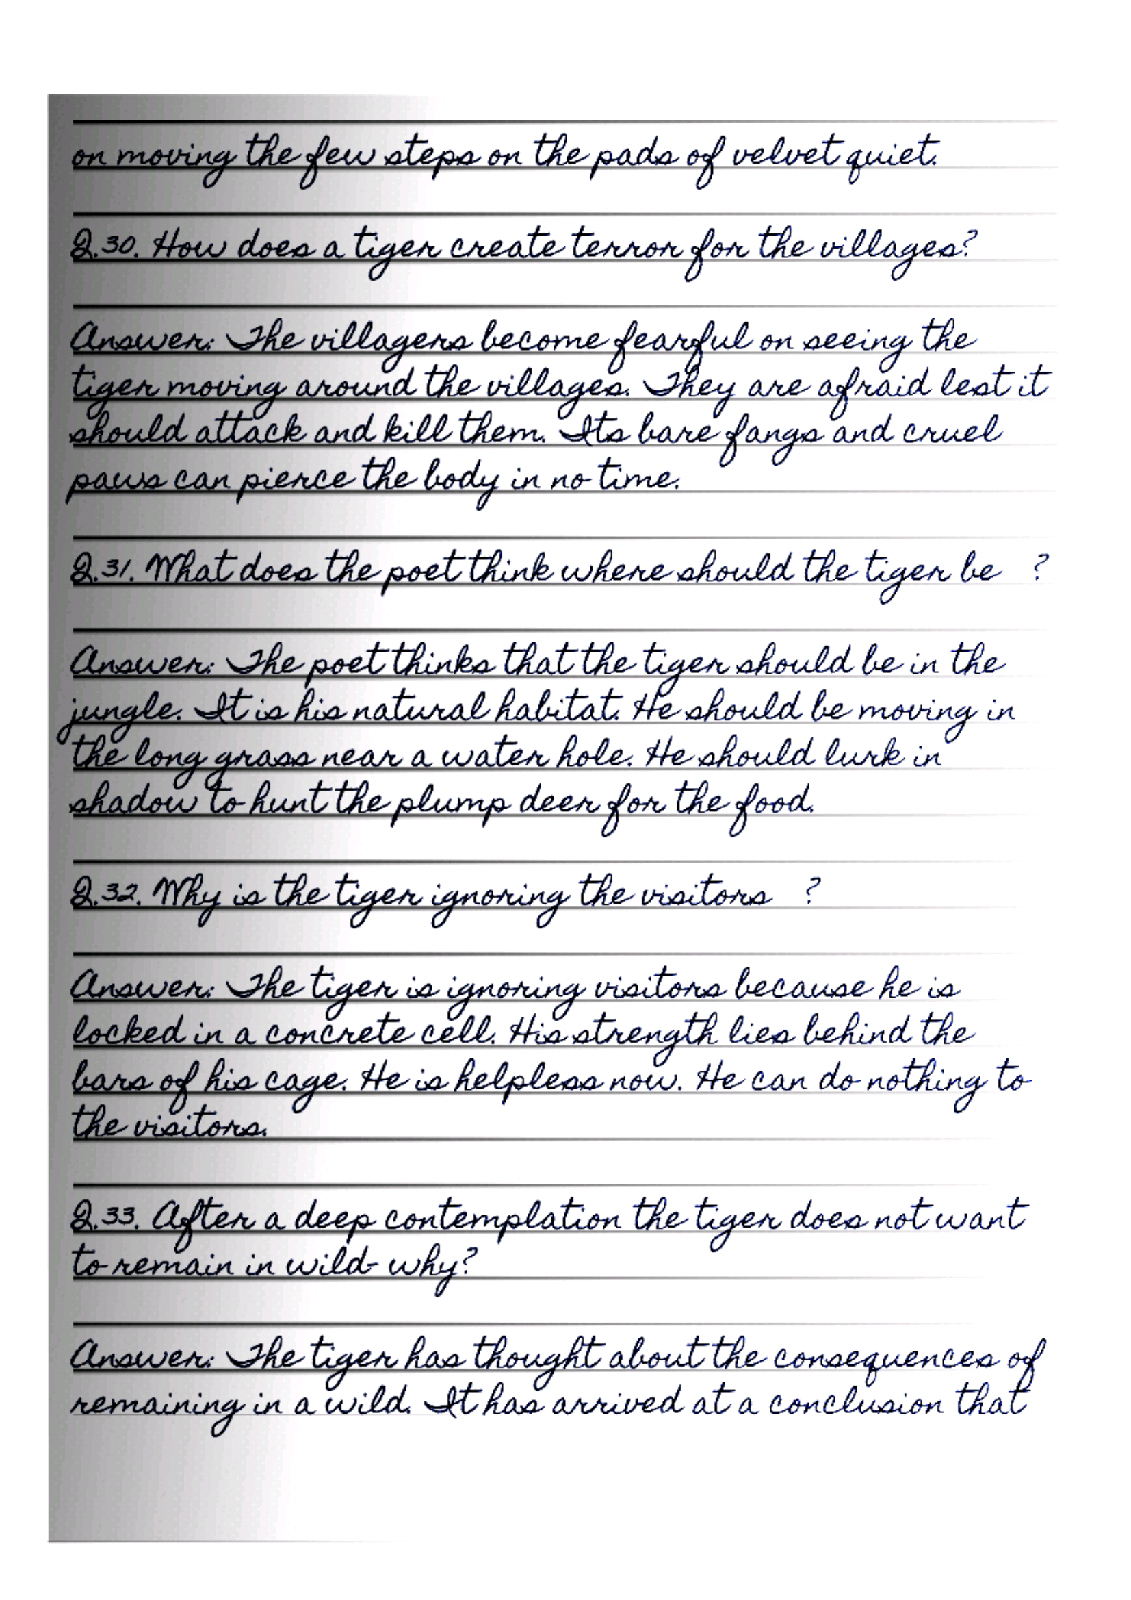 on moving the few steps on the pads of velvet quiet.
Q.30. How does a tiger create terror for the villages?
Answer: The villagers become fearful on seeing the
tiger moving around the villages. They are afraid lest it
should attack and kill them. Its bare fangs and cruel
paws can pierce the body in no time.
Q.31. What does the poet think where should the tiger be ?
Answer: The poet thinks that the tiger should be in the
jungle. It is his natural habitat. He should be moving in
the long grass near a water hole. He should lurk in
shadow to hunt the plump deer for the food.
Q.32. Why is the tiger ignoring the visitors ?
Answer: The tiger is ignoring visitors because he is
locked in a concrete cell. His strength lies behind the
bars of his cage. He is helpless now. He can do nothing to
the visitors.
Q.33. After a deep contemplation the tiger does not want
to remain in wild- why?
Answer: The tiger has thought about the consequences of
remaining in a wild. It has arrived at a conclusion that